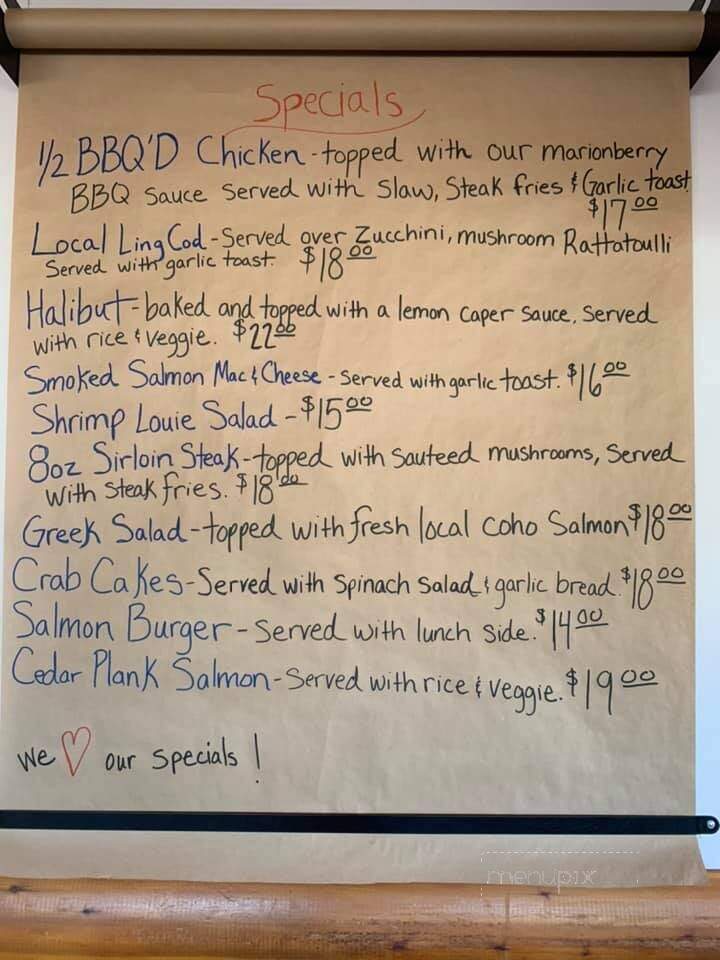 Specials
1/2 BBQ'D Chicken - topped with our marionberry
BBQ Sauce Served with Slaw, Steak fries & Garlic toast
$17 00
Local Ling Cod - Served over Zucchini, mushroom Rattatoulli
Served with garlic toast. $18 00
Halibut - baked and topped with a lemon caper sauce. Served
with rice & veggie. $22 00
Smoked Salmon Mac & Cheese - Served with garlic toast. $16 00
Shrimp Louie Salad - $15 00
8oz Sirloin Steak - topped with Sauteed mushrooms, Served
with Steak fries. $18 00
Greek Salad - topped with fresh local Coho Salmon $18 00
Crab Cakes - Served with Spinach Salad & garlic bread. $18 00
Salmon Burger - Served with lunch side. $14 00
Cedar Plank Salmon - Served with rice & veggie. $19 00
We ♡ our specials!
menupix